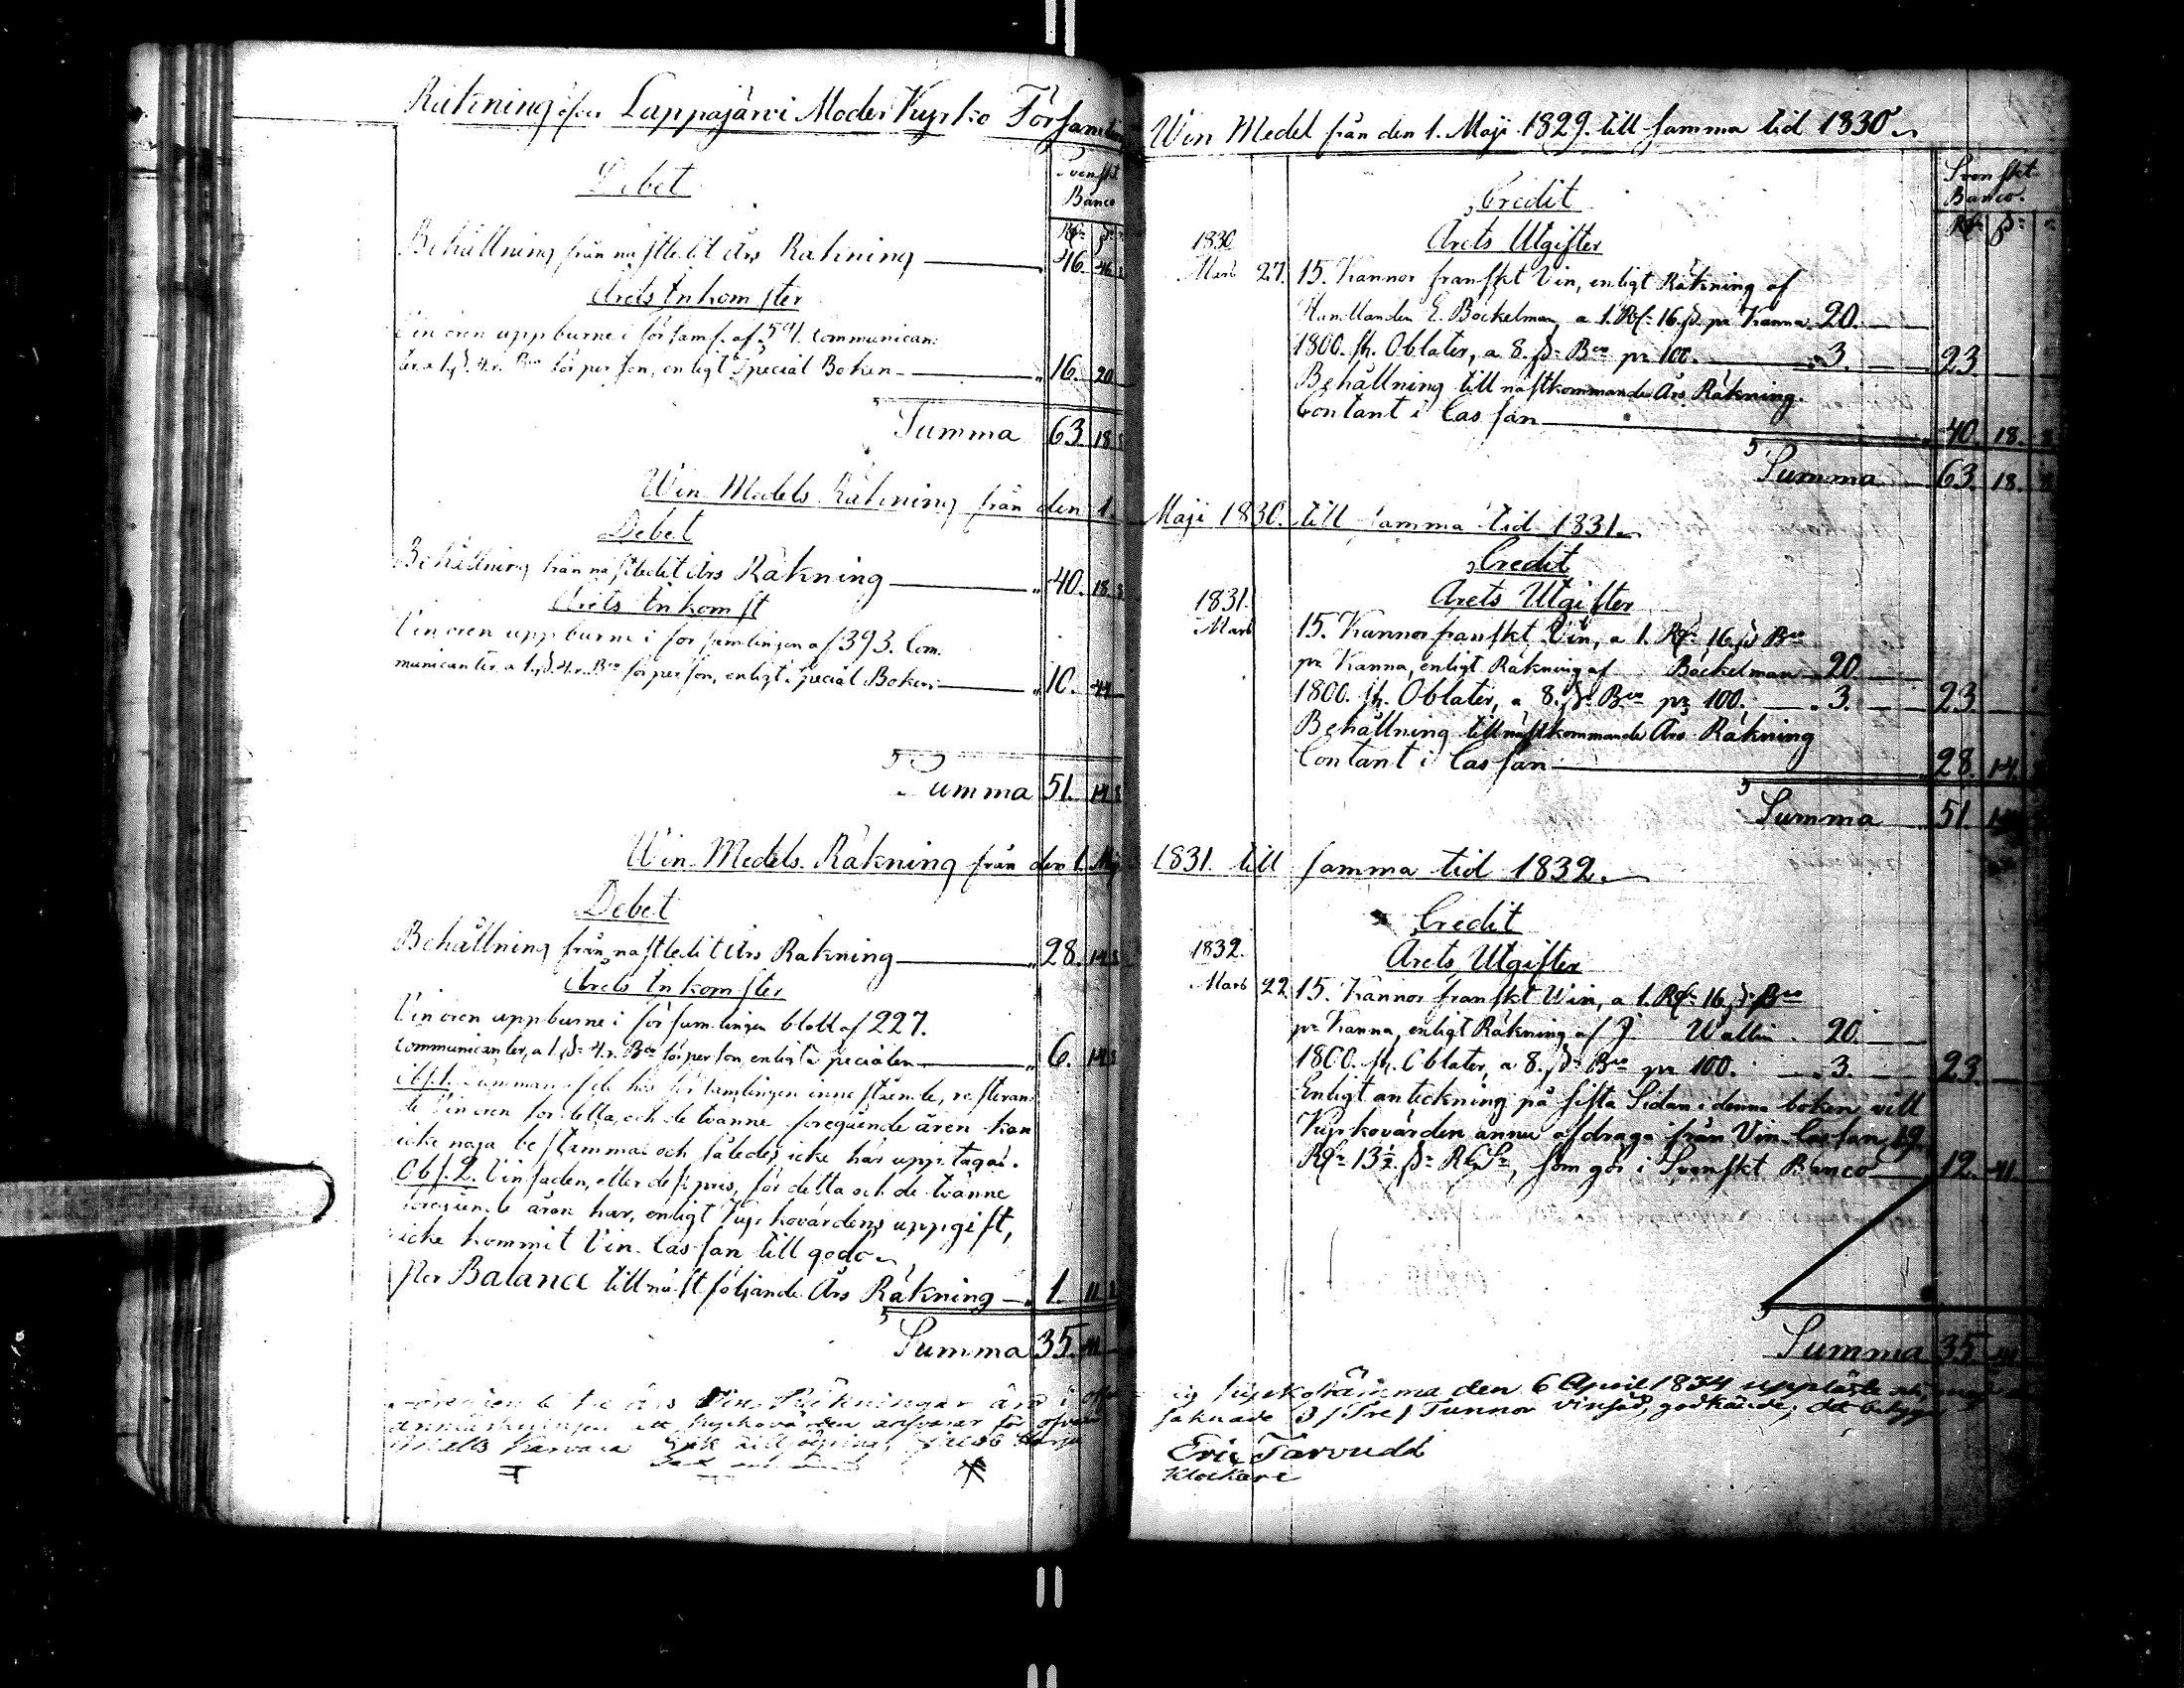 Räkning öfver Lappajärvi Moder Kyrko Församlin
Debet
Svenskt
Banco
Rd. s.
Behållning från nästledit års Räkning 46. 46. 8
Årets Inkomster
Vin ören uppburne i församl. af 591. communican-
ter, a 1. s. 4. r. Bco för person, enligt Special Boken 16. 20
Summa 63 18 8
Win Medels Räkning från den 1.
Debet
Behållning från nästledit års Räkning 40. 18. 8
Årets Inkomst
Vin ören uppburne i församlingen af 393. Com-
municanter a 1. s. 4. r. Bco för person, enligt Special Boken 10. 44
Summa 51. 14 8
Win Medels Räkning från den 1. Maj
Debet
Behållning från nästledit års Räkning 28. 14 8
Årets Inkomster
Vin ören uppburne i församlingen blott af 227.
communicanter, a 1. s. 4. r. Bco för person, enligt specialen 6. 14 8
Obs. 1. Summan af de hos församlingen innestående, resteran-
de Vin ören för detta, och de tvänne föregående åren kan
icke noga bestämmas och således icke här upptagas.
Obs. 2. Vinsäden, eller dess pris, för detta och de tvänne
föregående åren har, enligt Kyrkovärdens uppgift,
icke kommit Vin Cassan till godo.
Balance till nästföljande Års Räkning 1. 11 8
Summa 35. 41
Win Medel från den 1. Maji 1829. till samma tid 1830.
Svenskt
Banco.
Rd. s. r.
Credit
Årets Utgifter
1830
Mars 27. 15. Kannor franskt Vin, enligt Räkning af
Handlanden E. Böckelman, a 1. Rd. 16. s. pr Kanna 20.
1800. st. Oblater, a 8. s. Bco pr 100. 3. 23
Behållning till nästkommande Års Räkning.
Contant i Cassan 40. 18. 8
Summa 63. 18. 8
Maji 1830. till samma tid 1831.
Credit
Årets Utgifter
1831.
Mars 15. Kannor franskt Vin, a 1. Rd. 16. s. Bco
pr Kanna, enligt Räkning af Böckelman 20.
1800. st. Oblater, a 8. s. Bco pr 100. 3. 23
Behållning till nästkommande Års Räkning
Contant i Cassan 28. 14.
Summa 51. 14
1831. till samma tid 1832.
Credit
Årets Utgifter
1832.
Mars 22 15. Kannor franskt Win, a 1. Rd. 16. s. Bco
pr Kanna, enligt Räkning af J. Wallin 20.
1800. st. Oblater, a 8. s. Bco pr 100. 3. 23.
Enligt anteckning på sista Sidan i denna boken vill
Kyrkovärden ännu afdraga från Vin Cassan 19.
Rd. 13½. s. RgS, som gör i Svenskt Banco 12. 41
Summa 35 41
kyrkostämma den 6 April 1834 uppläste
saknade 3/Tre/Tunnor vinsäd, godkände; det betygar
Eric Tarvudd
Klockare